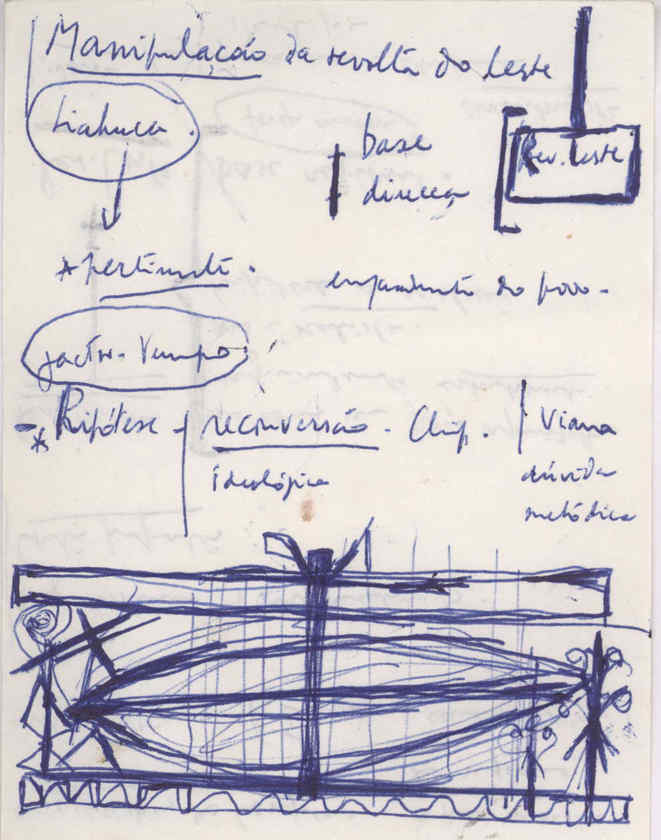 Manipulação da revolta do Leste
base
direcção
Rev. Leste
* pertinente.
engajamento do povo -
factor - Tempo
- * Hipótese - reconversão - Chip. Viana
ideológica dúvida
metódica